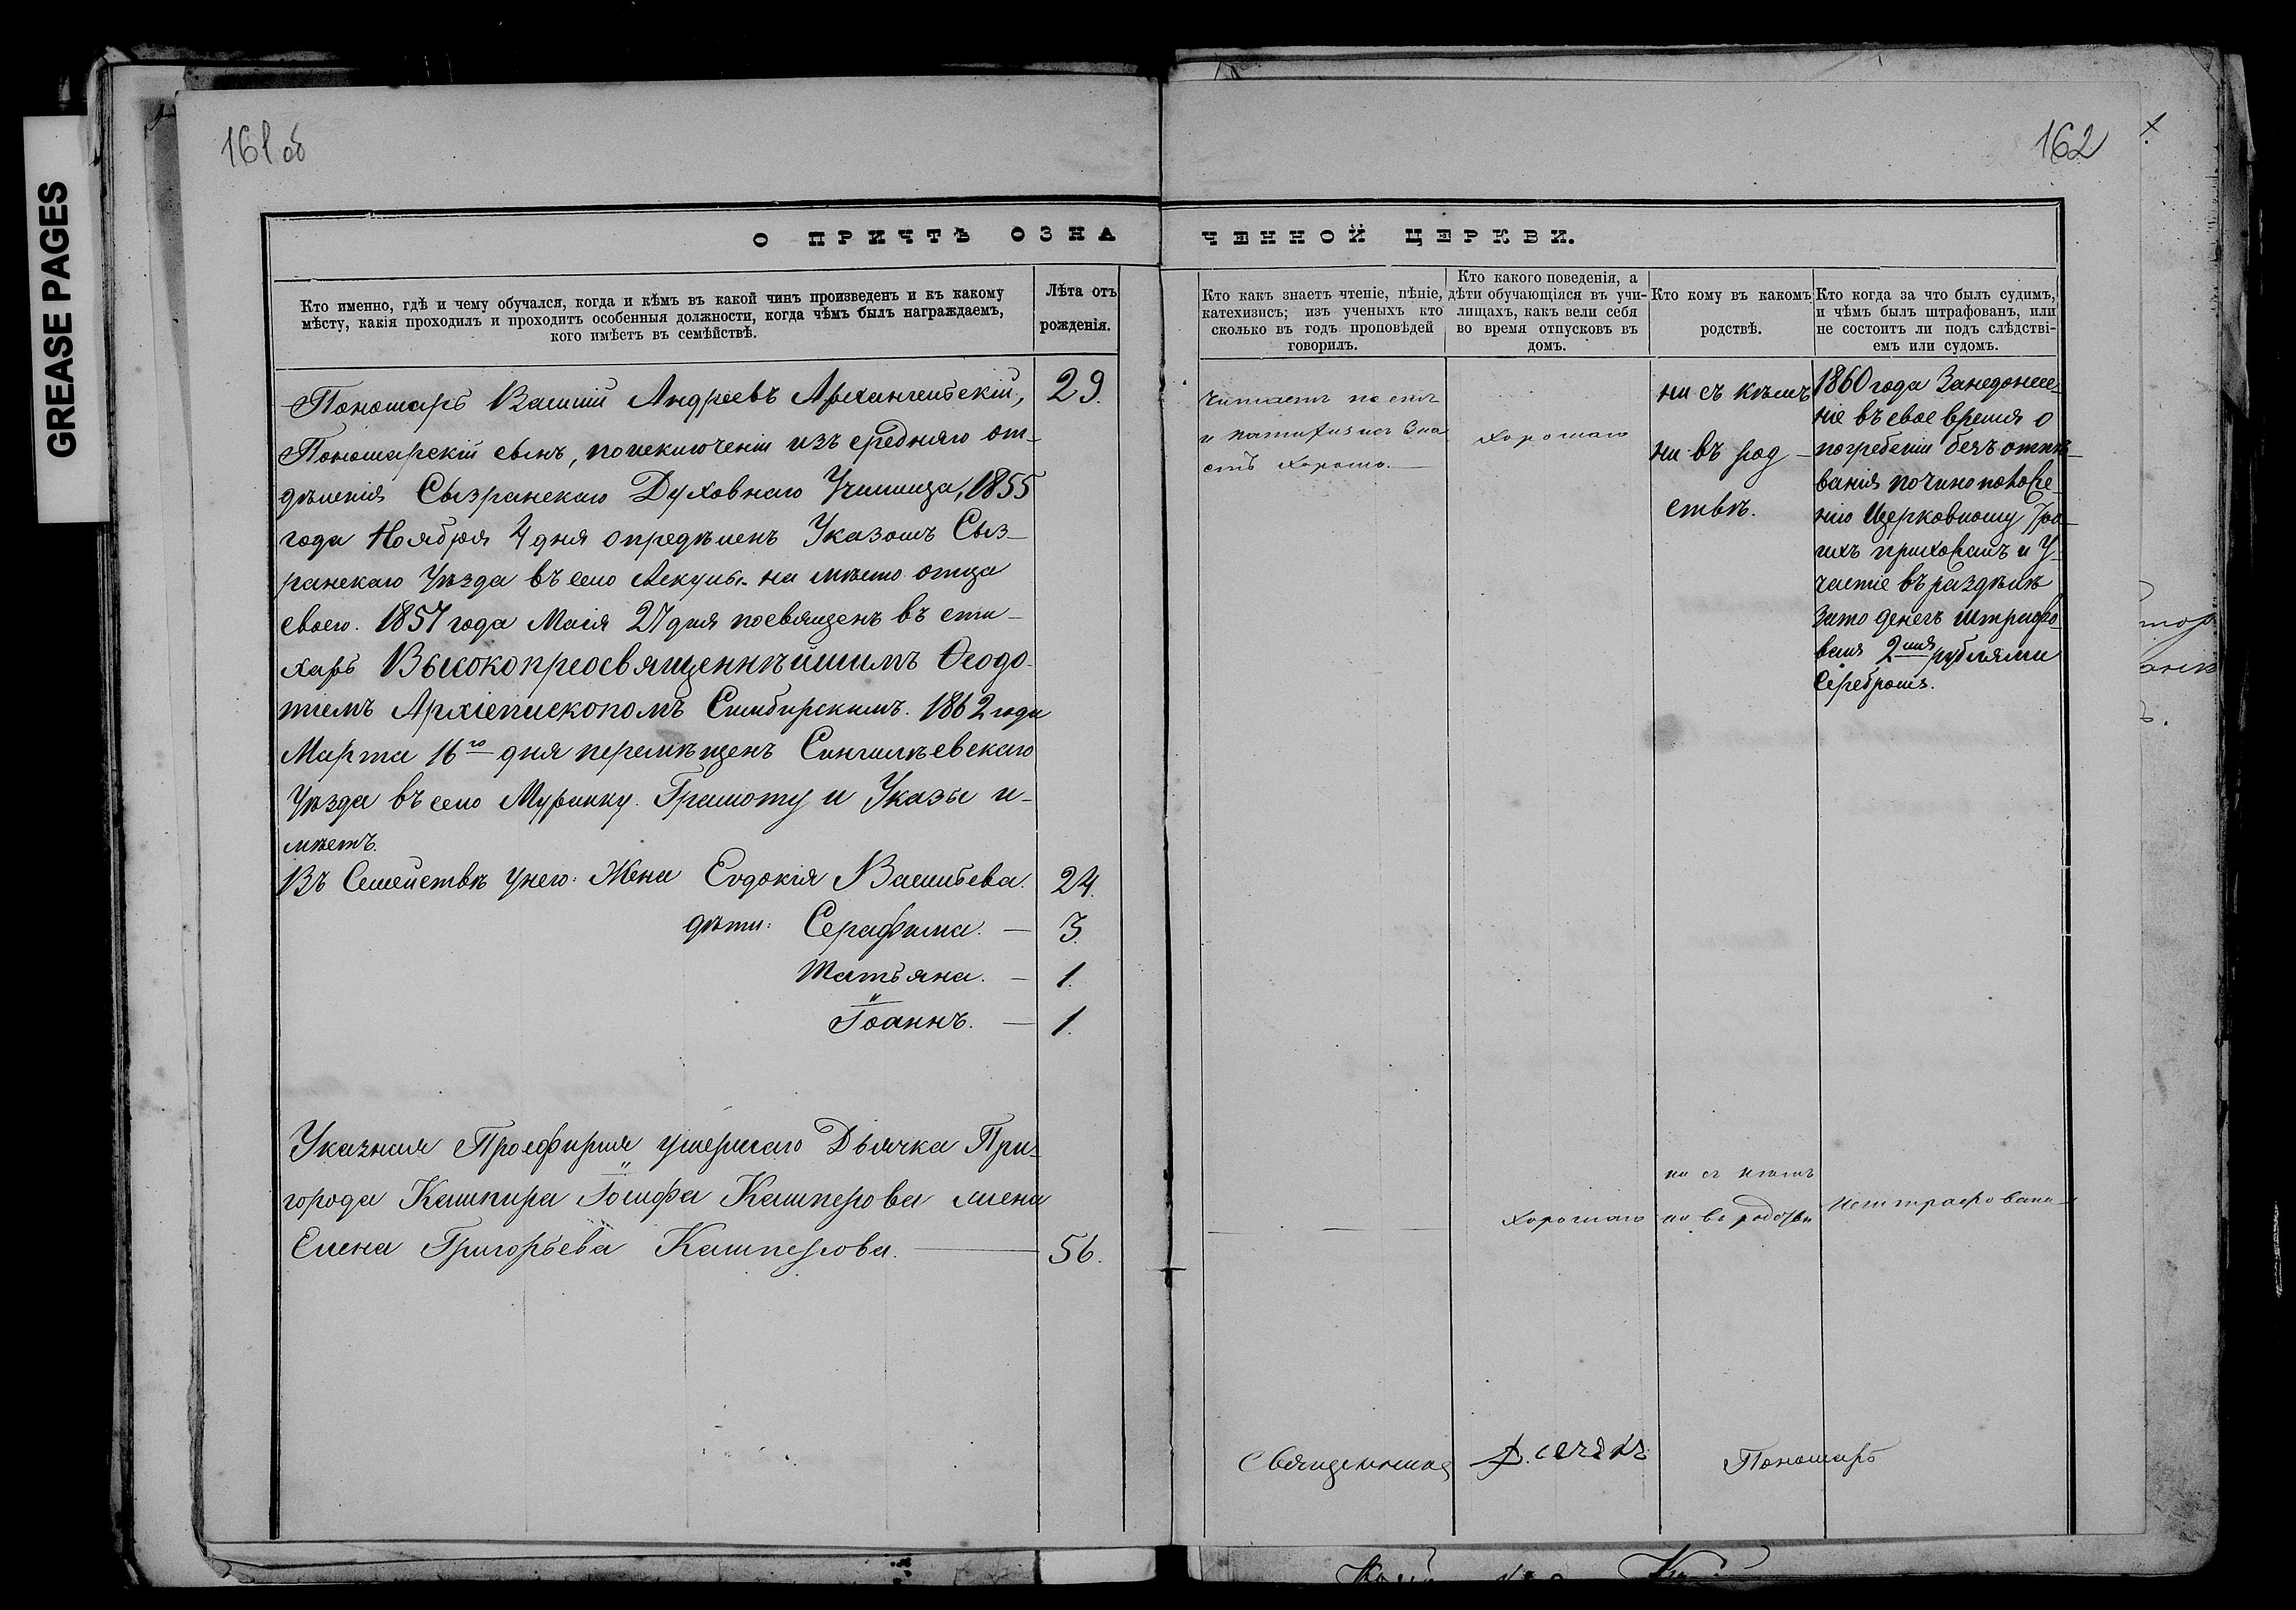 GREASE PAGES
161 об
162
О ПРИЧТѢ ОЗНА
ЧЕННОЙ ЦЕРКВИ.
Кто именно, гдѣ и чему обучался, когда и кѣмъ въ какой чинъ произведенъ и къ какому
мѣсту, какія проходилъ и проходитъ особенныя должности, когда чѣмъ былъ награждаемъ,
кого имѣетъ въ семѣйствѣ.
Лѣта отъ
рожденія.
Кто какъ знаетъ чтеніе, пѣніе,
катехизисъ; изъ ученыхъ кто
сколько въ годъ проповѣдей
говорилъ.
Кто какого поведенія, а
дѣти обучающіяся въ учи-
лищахъ, какъ вели себя
во время отпусковъ въ
домъ.
Кто кому въ какомъ
родствѣ.
Кто когда за что былъ судимъ,
и чѣмъ былъ штрафованъ, или
не состоитъ ли подъ слѣдстві-
емъ или судомъ.
Пономарь Василій Андреевъ Архангельскій, 29.
Пономарскій сынъ, по исключеніи изъ средняго от-
дѣленія Сызранскаго Духовнаго Училища, 1855
года Ноября 4 дня опредѣленъ Указомъ Сыз-
ранскаго Уѣзда въ село на мѣсто отца
своего. 1857 года Маія 27 дня посвященъ въ сти-
харь Высокопреосвященнѣйшимъ Ѳеодо-
тіемъ Архіепископомъ Симбирскимъ. 1862 года
Марта 16го дня перемѣщенъ Сингилѣевскаго
Уѣзда въ село Муранку. Грамоту и Указы и-
мѣетъ.
Въ Семействѣ у него: Жена Евдокія Васильева. 24.
дѣти: Серафима. — 3.
Татьяна. — 1.
Іоаннъ. — 1.
читаетъ поетъ
и катихизисъ зна
етъ хорошо.
хорошаго
ни съ кѣмъ
ни въ род-
ствѣ.
1860 года За недонесе-
ніе въ свое время о
погребеніи безъ отпѣ-
ванія по чиноположе-
нію Церковному
прихожанъ и У-
частіе въ раздѣлѣ
за то денегъ штрафо-
ванъ 2мя рублями
Серебромъ.
Указная Просфирня умершаго Дьячка При-
города Кашпира Іосифа Кашперова жена
Елена Григорьева Кашперова. — 56.
хорошаго
ни съ кѣмъ
ни въ родствѣ
Нештрафована
Священникъ
Пономарь